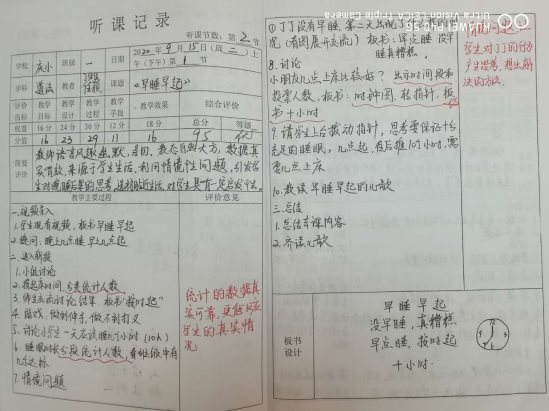 听课记录
听课节数:第2节
学校 庆小 班级 一 日期 2020年9月15日(周二)上午(下午)第1节
学科 道法 教者 课题 《早睡早起》
评价指标 教学目标 教学设计 教学过程 教学手段 教学效果 综合评价
权重 16分 24分 30分 12分 18分 总分 等级
分值 16 23 29 11 16 95 优
简要评价
教师语言风趣幽默,亲切、教态自然大方,数据真
实有效,来源于学生生活,利用情境性问题,引发学
生对晚睡后果的思考,选材贴近生活,对学生具有一定启发性。
教学主要过程 评价意见
一、视频导入
1.学生观看视频,板书早睡早起
2.提问,晚上几点睡,早上几点起
二、进入新授
1.小组讨论
2.按起床时间,分类统计人数
3.师生交流讨论结果 板书"按时起"
4.游戏,做到伸手,做不到打叉
5.讨论小学生一天应该睡几个小时(10h)
6.睡眠时长分段统计人数,看班级中有
几个达标
7.情境问题
统计的数据真
实可靠,更能反应
学生的真实情
况
HUAWEI P30 Pro
Ultra Vision Leica Triple Camera
①丁丁没有早睡,第二天出现了
况(看图展开交流) 板书:早点睡 没早
睡真糟糕
8.讨论
小朋友几点上床比较好? 出示时间段和
投票人数,板书:时钟图,转指针,板
书十小时
9.请学生上台拨动指针,思考要保证十个
充足的睡眠,几点起,往后推10小时,需
要几点上床
10.教读早睡早起的儿歌
三、总结
1.总结本课内容
2.齐读儿歌
学生对丁丁的行为
产生思考,想出解
决的方法.
板书设计
早睡早起
没早睡,真糟糕
早点睡,按时起
十小时